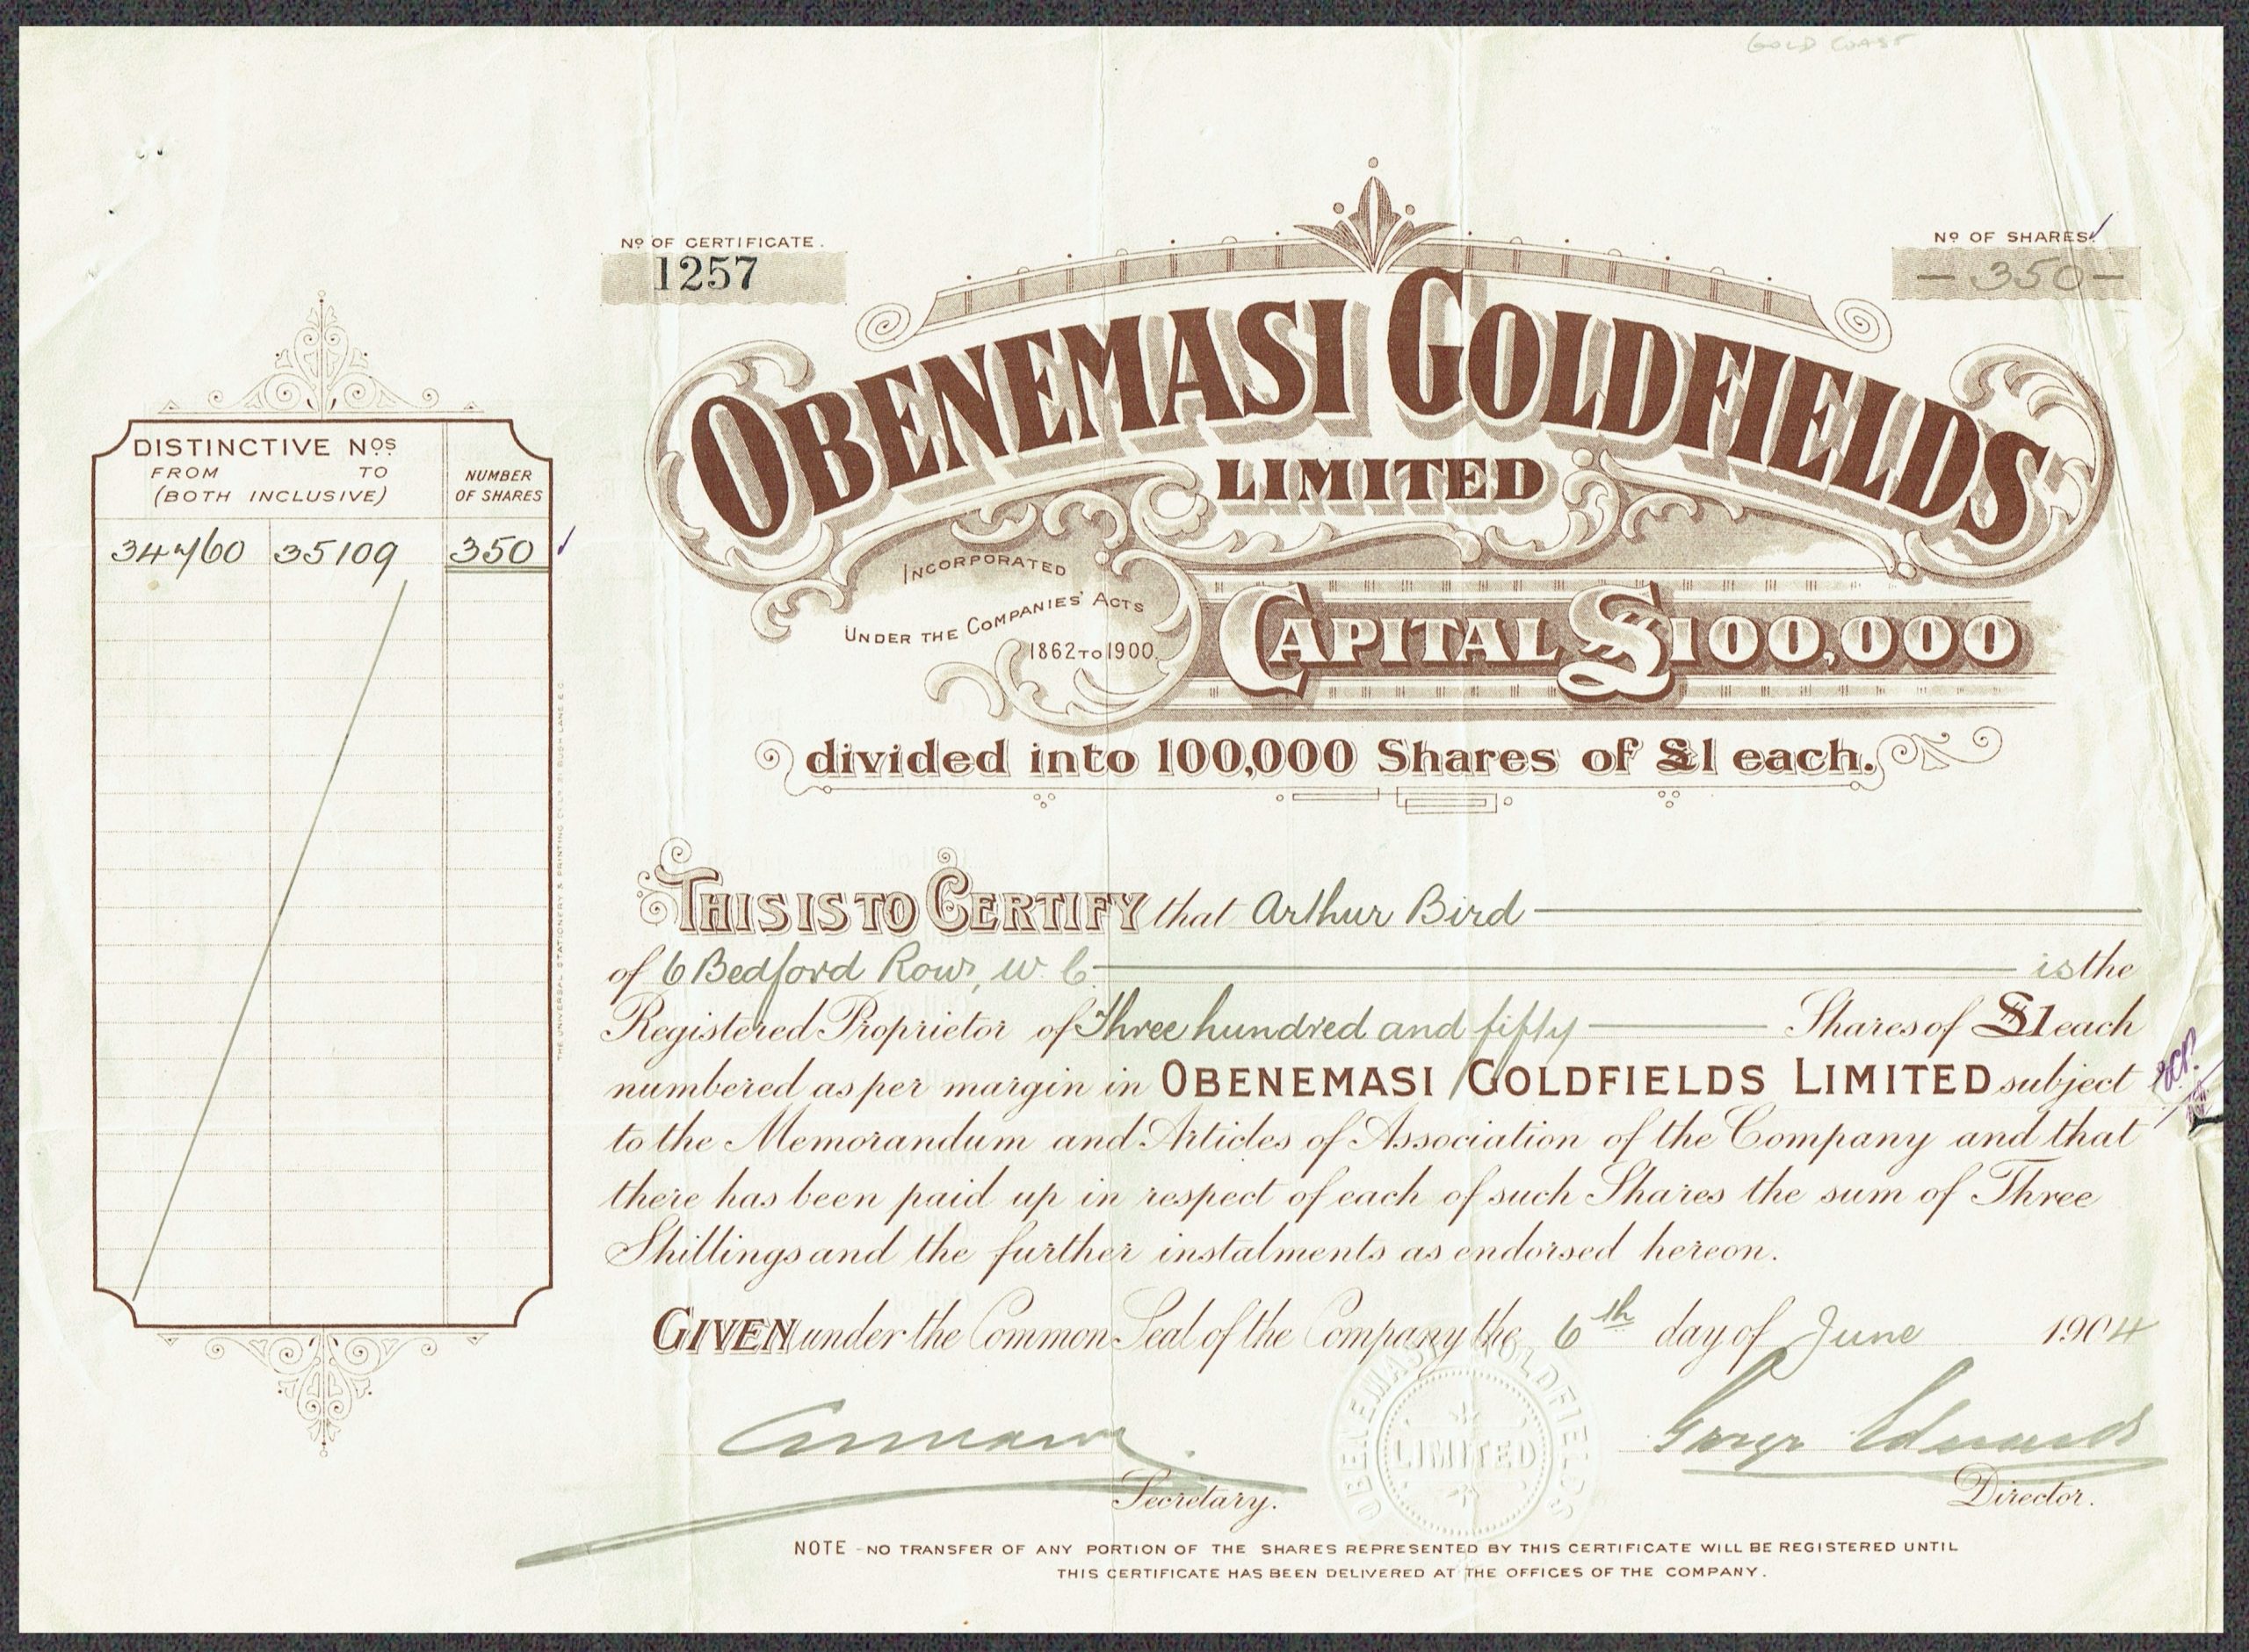 GOLD COAST
Nº OF CERTIFICATE.
1257
Nº OF SHARES
— 350 —
OBENEMASI GOLDFIELDS
LIMITED
INCORPORATED
UNDER THE COMPANIES' ACTS
1862 TO 1900
CAPITAL £100,000
divided into 100,000 Shares of £1 each.
DISTINCTIVE NOS
FROM TO
(BOTH INCLUSIVE)
NUMBER
OF SHARES
34760 35109 350
THIS IS TO CERTIFY that Arthur Bird
of 6 Bedford Row, W.C. is the
Registered Proprietor of Three hundred and fifty Shares of £1 each
numbered as per margin in OBENEMASI GOLDFIELDS LIMITED subject
to the Memorandum and Articles of Association of the Company and that
there has been paid up in respect of each of such Shares the sum of Three
Shillings and the further instalments as endorsed hereon.
GIVEN under the Common Seal of the Company the 6th day of June 1904
OBENEMASI GOLDFIELDS
LIMITED
George Edwards
Secretary.
Director.
NOTE - NO TRANSFER OF ANY PORTION OF THE SHARES REPRESENTED BY THIS CERTIFICATE WILL BE REGISTERED UNTIL
THIS CERTIFICATE HAS BEEN DELIVERED AT THE OFFICES OF THE COMPANY.
THE UNIVERSAL STATIONERY & PRINTING